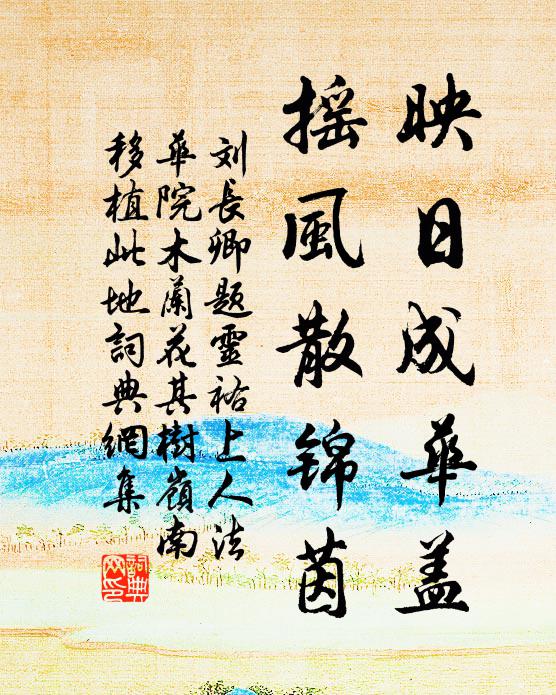 映日成华盖
摇風散锦茵
刘長卿题靈祐上人法
華院木蘭花其樹嶺南
移植此地詞典網集
詞典
网印